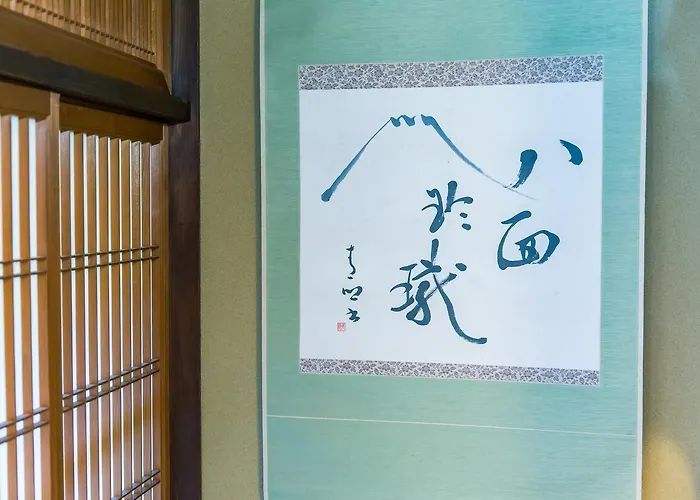 八面
玲瓏